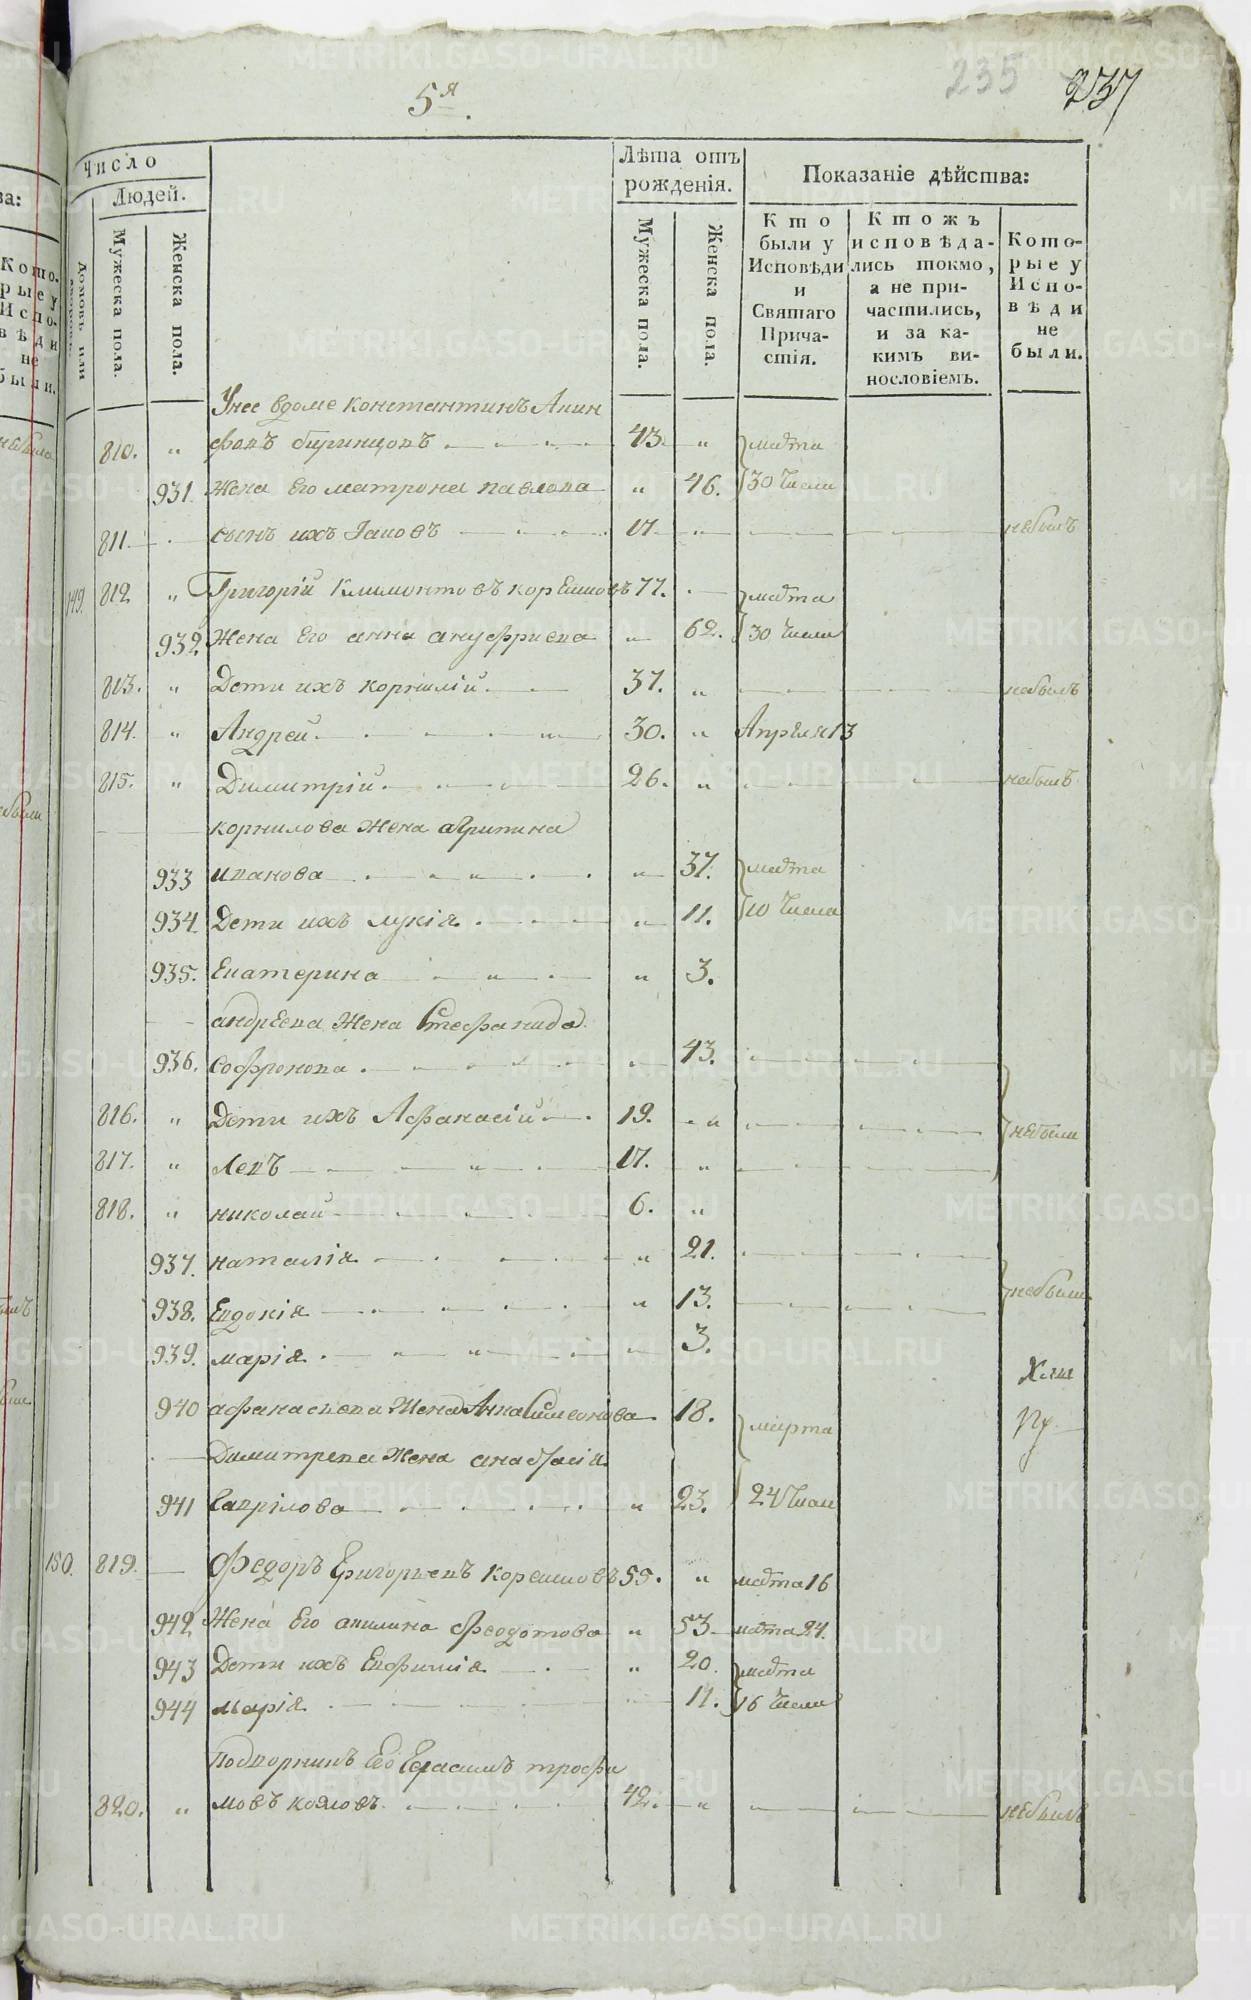 5я.
235 237
Число
Людей.
Домовъ или
Мужеска пола.
Женска пола.
Лѣта отъ
рожденія.
Мужеска пола.
Женска пола.
Показаніе дѣйства:
Кто
были у
Исповѣди
и
Святаго
Прича-
стія.
Ктожъ
исповѣда-
лись токмо,
а не при-
частились,
и за ка-
кимъ ви-
нословіемъ.
Кото-
рые у
Испо-
вѣди
не
были.
Унее вдоме Константинъ Анин
810. " фовъ 43. " марта
931. Жена Его матрона павлова " 46. 30 Числа
811. сынъ ихъ Іаковъ 17. " небылъ
149. 812 " Григорій Климонтовъ корЕшковъ 77. марта
932. Жена Его анна ануфриева " 62. 30 Числа
813. " Дети ихъ корнилій 37. " небылъ
814. " Андрей 30. " Апреля 13
815. " Димитрій 26. " небылъ
корнилова Жена агрипина
933 иванова " 37. марта
934. Дети ихъ лукія " 11. 10 Числа
935. Екатерина " 3.
андрЕева Жена Стефанида
936. софронова 43.
816. " Дети ихъ Афанасій 19. " небыли
817. " Левъ 17. "
818. " николай 6. "
937. наталія " 21.
938. Евдокія " 13. небыли
939. марія 3.
940 афанасьева Жена Анна Симеонова 18. марта
Димитрева Жена анастасія
941 Гаврілова " 23. 24 Числ
150. 819. Федоръ Григорьевъ корешковъ 55. " марта 16
942. Жена Его акилина Феодотова " 53 марта 24.
943 Дети ихъ Евфимія " 20. марта
944 марія 11. 16 Числа
подворникъ Его Герасимъ трофи
820. " мовъ козловъ 42. " небылъ